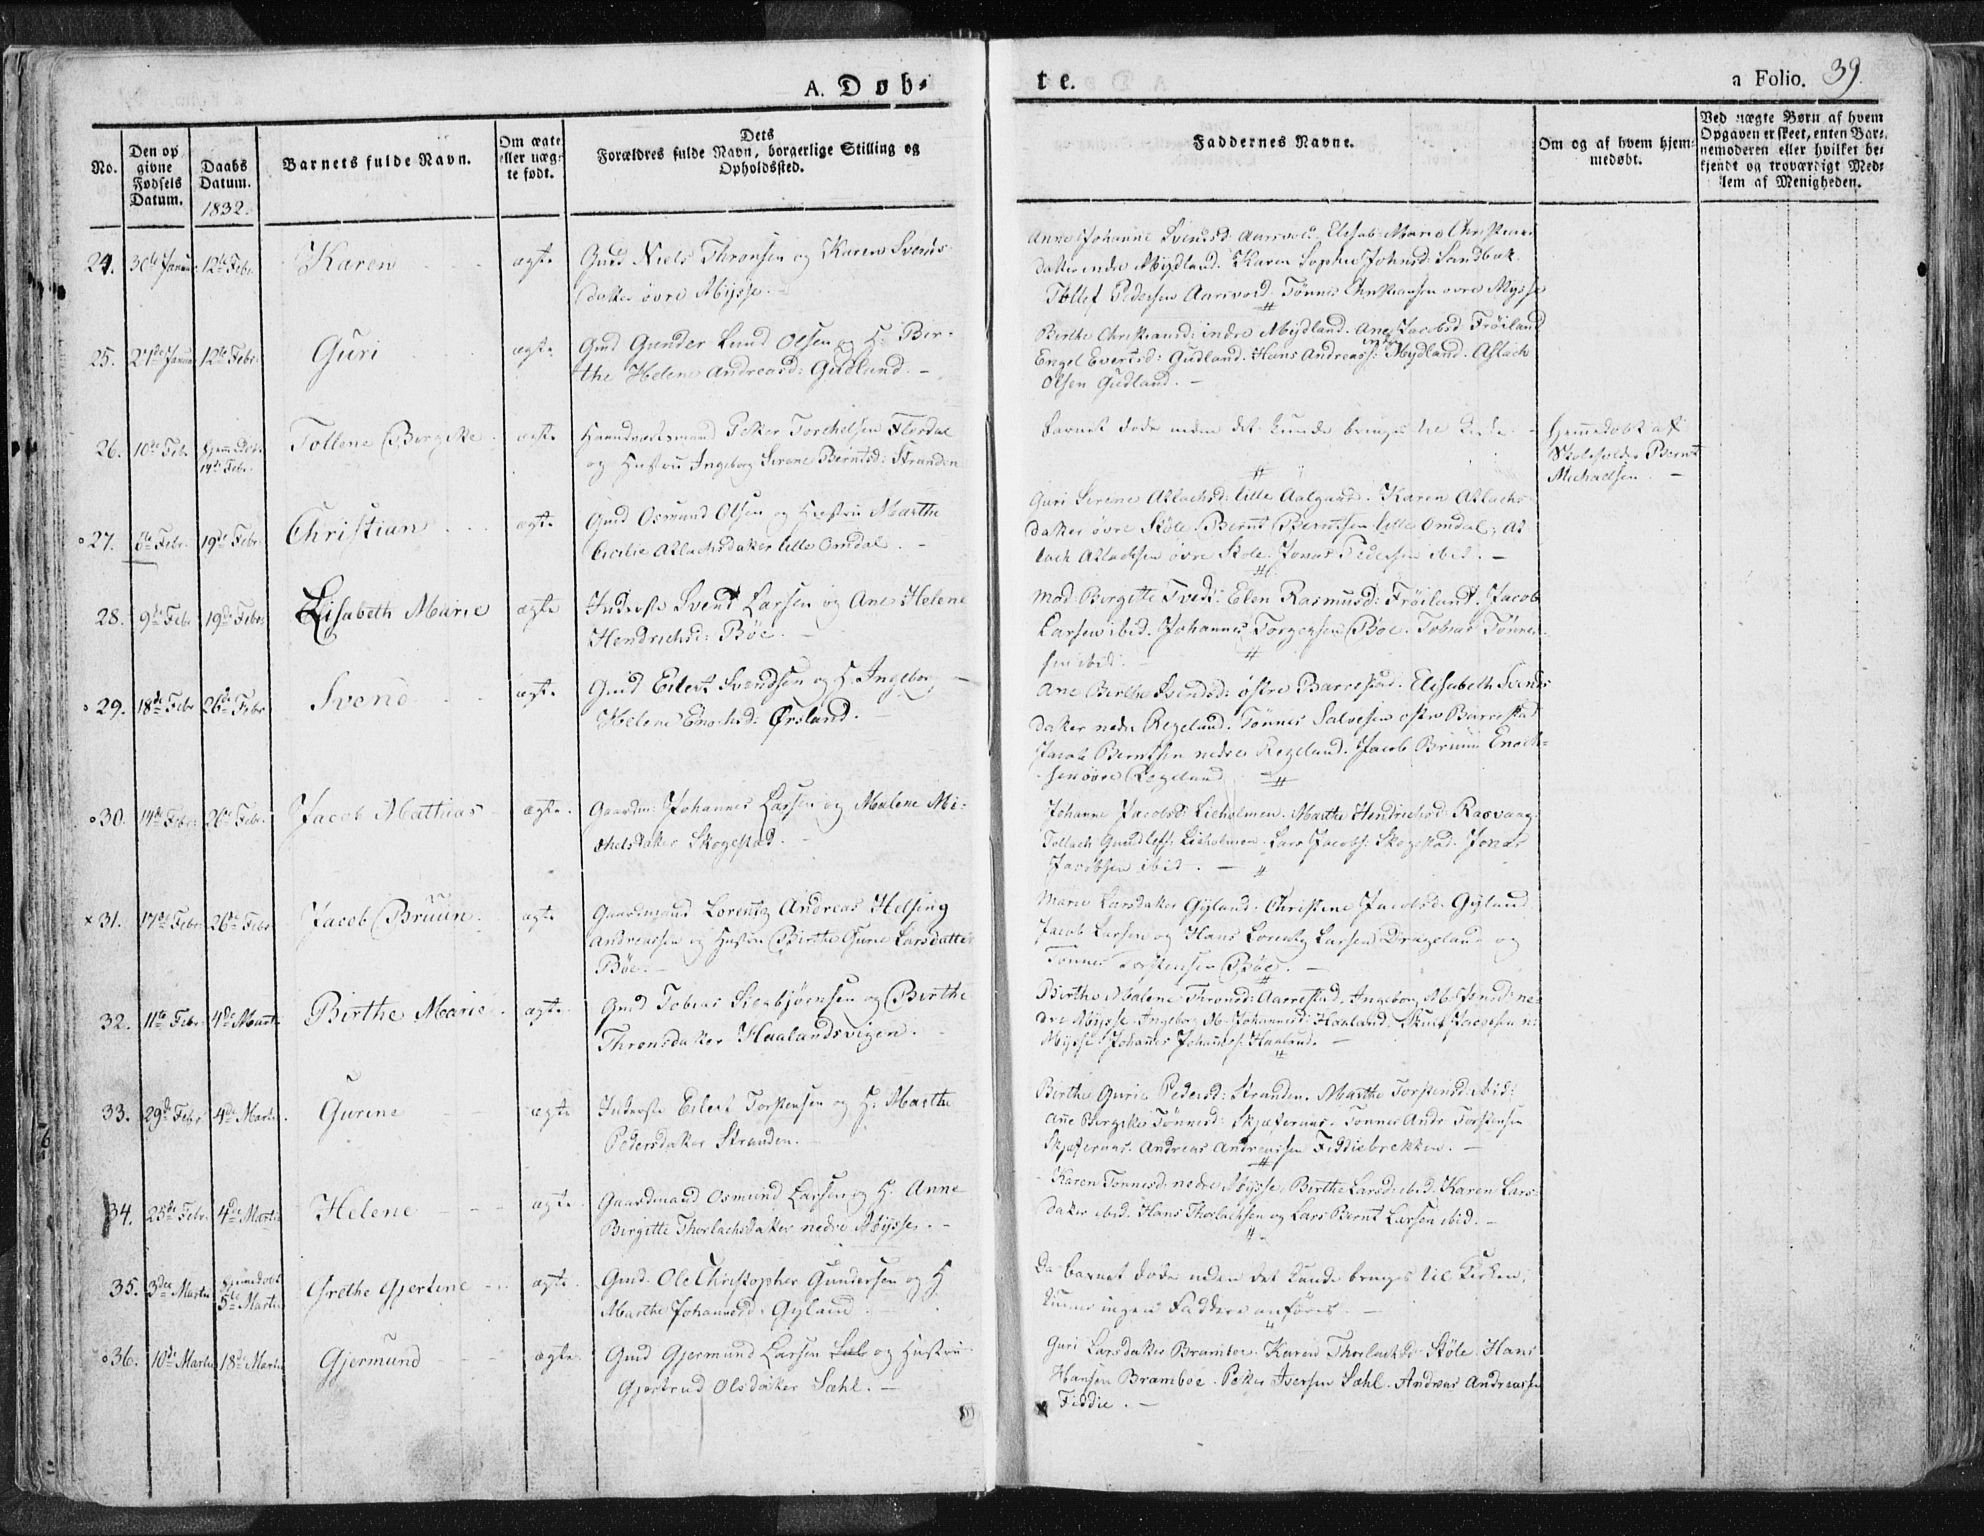 A. Døb-
te.
a Folio. 39.
No.
Den op
givne
Fødsels
Datum.
Daabs
Datum.
1832.
Barnets fulde Navn.
Om ægte
eller uæg-
te født.
Dets
Forældres fulde Navn, borgerlige Stilling og
Opholdssted.
Faddernes Navne.
Om og af hvem hjem-
medøbt.
Ved uægte Børn af hvem
Opgaven er skeet, enten Bar-
nemoderen eller hvilket be-
kjendt og troværdigt Med-
lem af Menigheden.
24. 30te Januar 12te Febr. Karen ægte Gmd Niels Thronsen og Karen Svends-
datter øvre Mydsse.
Anne Johanne Svendsd: Aarrvold. Elisab: Marie Christians
datter indre Mydland. Karen Sophie Johnsd: Sandbek.
Tollef Pedersen Aarsvold. Tønnes Christiansen øvre Mysse
25. 27de Januar 12te Febr. Guri ægte Gmd Gunder Lund Olsen og H: Bir-
the Helene Andreasd: Gudland. -
Birthe Christiansd: indre Mydland. Ane Jacobsd Frøiland
Engel Evertsd: Gudland. Hans Andreass: indre Mydland. Aslach
Olsen Gudland. -
26. 10de Febr. Hjem Døbt
14de Febr. Tollene Bergitte ægte Peter Torchelsen Flordal
og Hustru Ingeborg Serene Berntsd: Stranden
Barnet døde inden det kunde bringes til Kirke
Hjemmedøbt af
Skoleholder Bernt
Michaelsen. -
27. 6te Febr. 19de Febr. Christian ægte Gmd Osmund Olsen og Hustru Marthe
Cecilie Aslachsdatter lille Omdal. -
Guri Serene Aslachsd: lille Aalgaard. Karen Aslachs-
datter øvre Støle. Bernt Berntsen lille Omdal; As
lach Aslachsen øvre Stole. Jonas Pedersen ibid. -
28. 9de Febr. 19de Febr. Elisabeth Marie ægte Inderste Svend Larsen og Ane Helene
Hendrichsd: Bøe.
Mad: Bergitte Tvedt. Elen Rasmusd: Frøiland. Jacob
Larsen ibid. Johannes Torgersen Bøe. Tobias Tønnes-
sen ibid. -
29. 18de Febr 26de Febr Svend ægte Gmd Eilert Svendsen og H. Ingeborg
Helene Enochsd: Ørsland. -
Ane Berthe Svendsd: østre Barrestad. Elisabeth Svends
datter nedre Regeland. Tønnes Salvesen østre Barrestad
Jacob Berntsen nedre Regeland. Jacob Bruun Enoch-
sen øvre Regeland
30. 14de Febr. 26de Febr. Jacob Mathias ægte. Gaardm: Johannes Larsen og Malene Mi-
chelsdatter Skogestad.
Johanne Jacobsd: Lieholmen. Marthe Hendrichsd: Rasvaag.
Tollach Gundlefs: Lieholmen. Lars Jacobs: Skogestad. Jonas
Jacobsen ibid. -
31. 17de Febr. 26de Febr Jacob Bruun. ægte Gaardmand Lorentz Andreas Helsing
Andreassen og Hustru Birthe Gurie Larsdatter
Bøe. -
Marie Larsdatter Gyland. Christine Jacobsd. Gyland
Jacob Larsen og Hans Lorentz Larsen Drageland og
Tønnes Torstensen Bøe. -
32. 11te Febr. 4de Martii Birthe Marie ægte Gmd Tobias Steenbjørnsen og Birthe
Thronsdatter Haalandsvigen.
Birthe Malene Thronsd: Aarrestad. Ingeborg M. Jonsd: ne-
dre Mysse. Ingeborg M. Johannesd: Haaland. Jacobsen n:
Mysse. Johannes Johannes: Haaland. -
33. 29de Febr. 4de Martii. Gurine ægte Inderste Eilert Torstensen og H: Marthe
Pedersdatter Stranden.
Birthe Gurie Pedersd: Stranden. Marthe Torstensd: ibid:
Ane Bergitte Tønnesd: Skjæfernæs. Tønnes Andr Torstensen
Skjæfernæs. Andreas Andreassen Fiddiebrekken. -
34. 25de Febr. 4de Martii Helene ægte. Gaardmand Osmund Larsen og H: Anne
Birgitte Thorlachsdatter nedre Mysse. -
Karen Tønnesd: nedre Mysse, Birthe Larsd: ibid. Karen Lars-
datter ibid. Hans Thorlachsen og Lars Bernt Larsen ibid. -
35. 3die Martii Hjemmedøbt
5te Martii Grethe Gjertine ægte. Gmd. Ole Christopher Gundersen og H
Marthe Johannesd: Gyland.
Da barnet døde inden det kunde bringes til Kirken,
kunne ingen Faddere anføres -
36. 10de Martii 18de Martii Gjermund ægte Gmd Gjermund Larsen og Hustru
Gjertrud Olsdatter Sæhl. -
Guri Larsdatter Bramboe. Karen Thorlachsd: Støle. Hans
Hansen Bramboe. Peter Iversen Sæhl. Andreas Andreassen
Fiddie. -